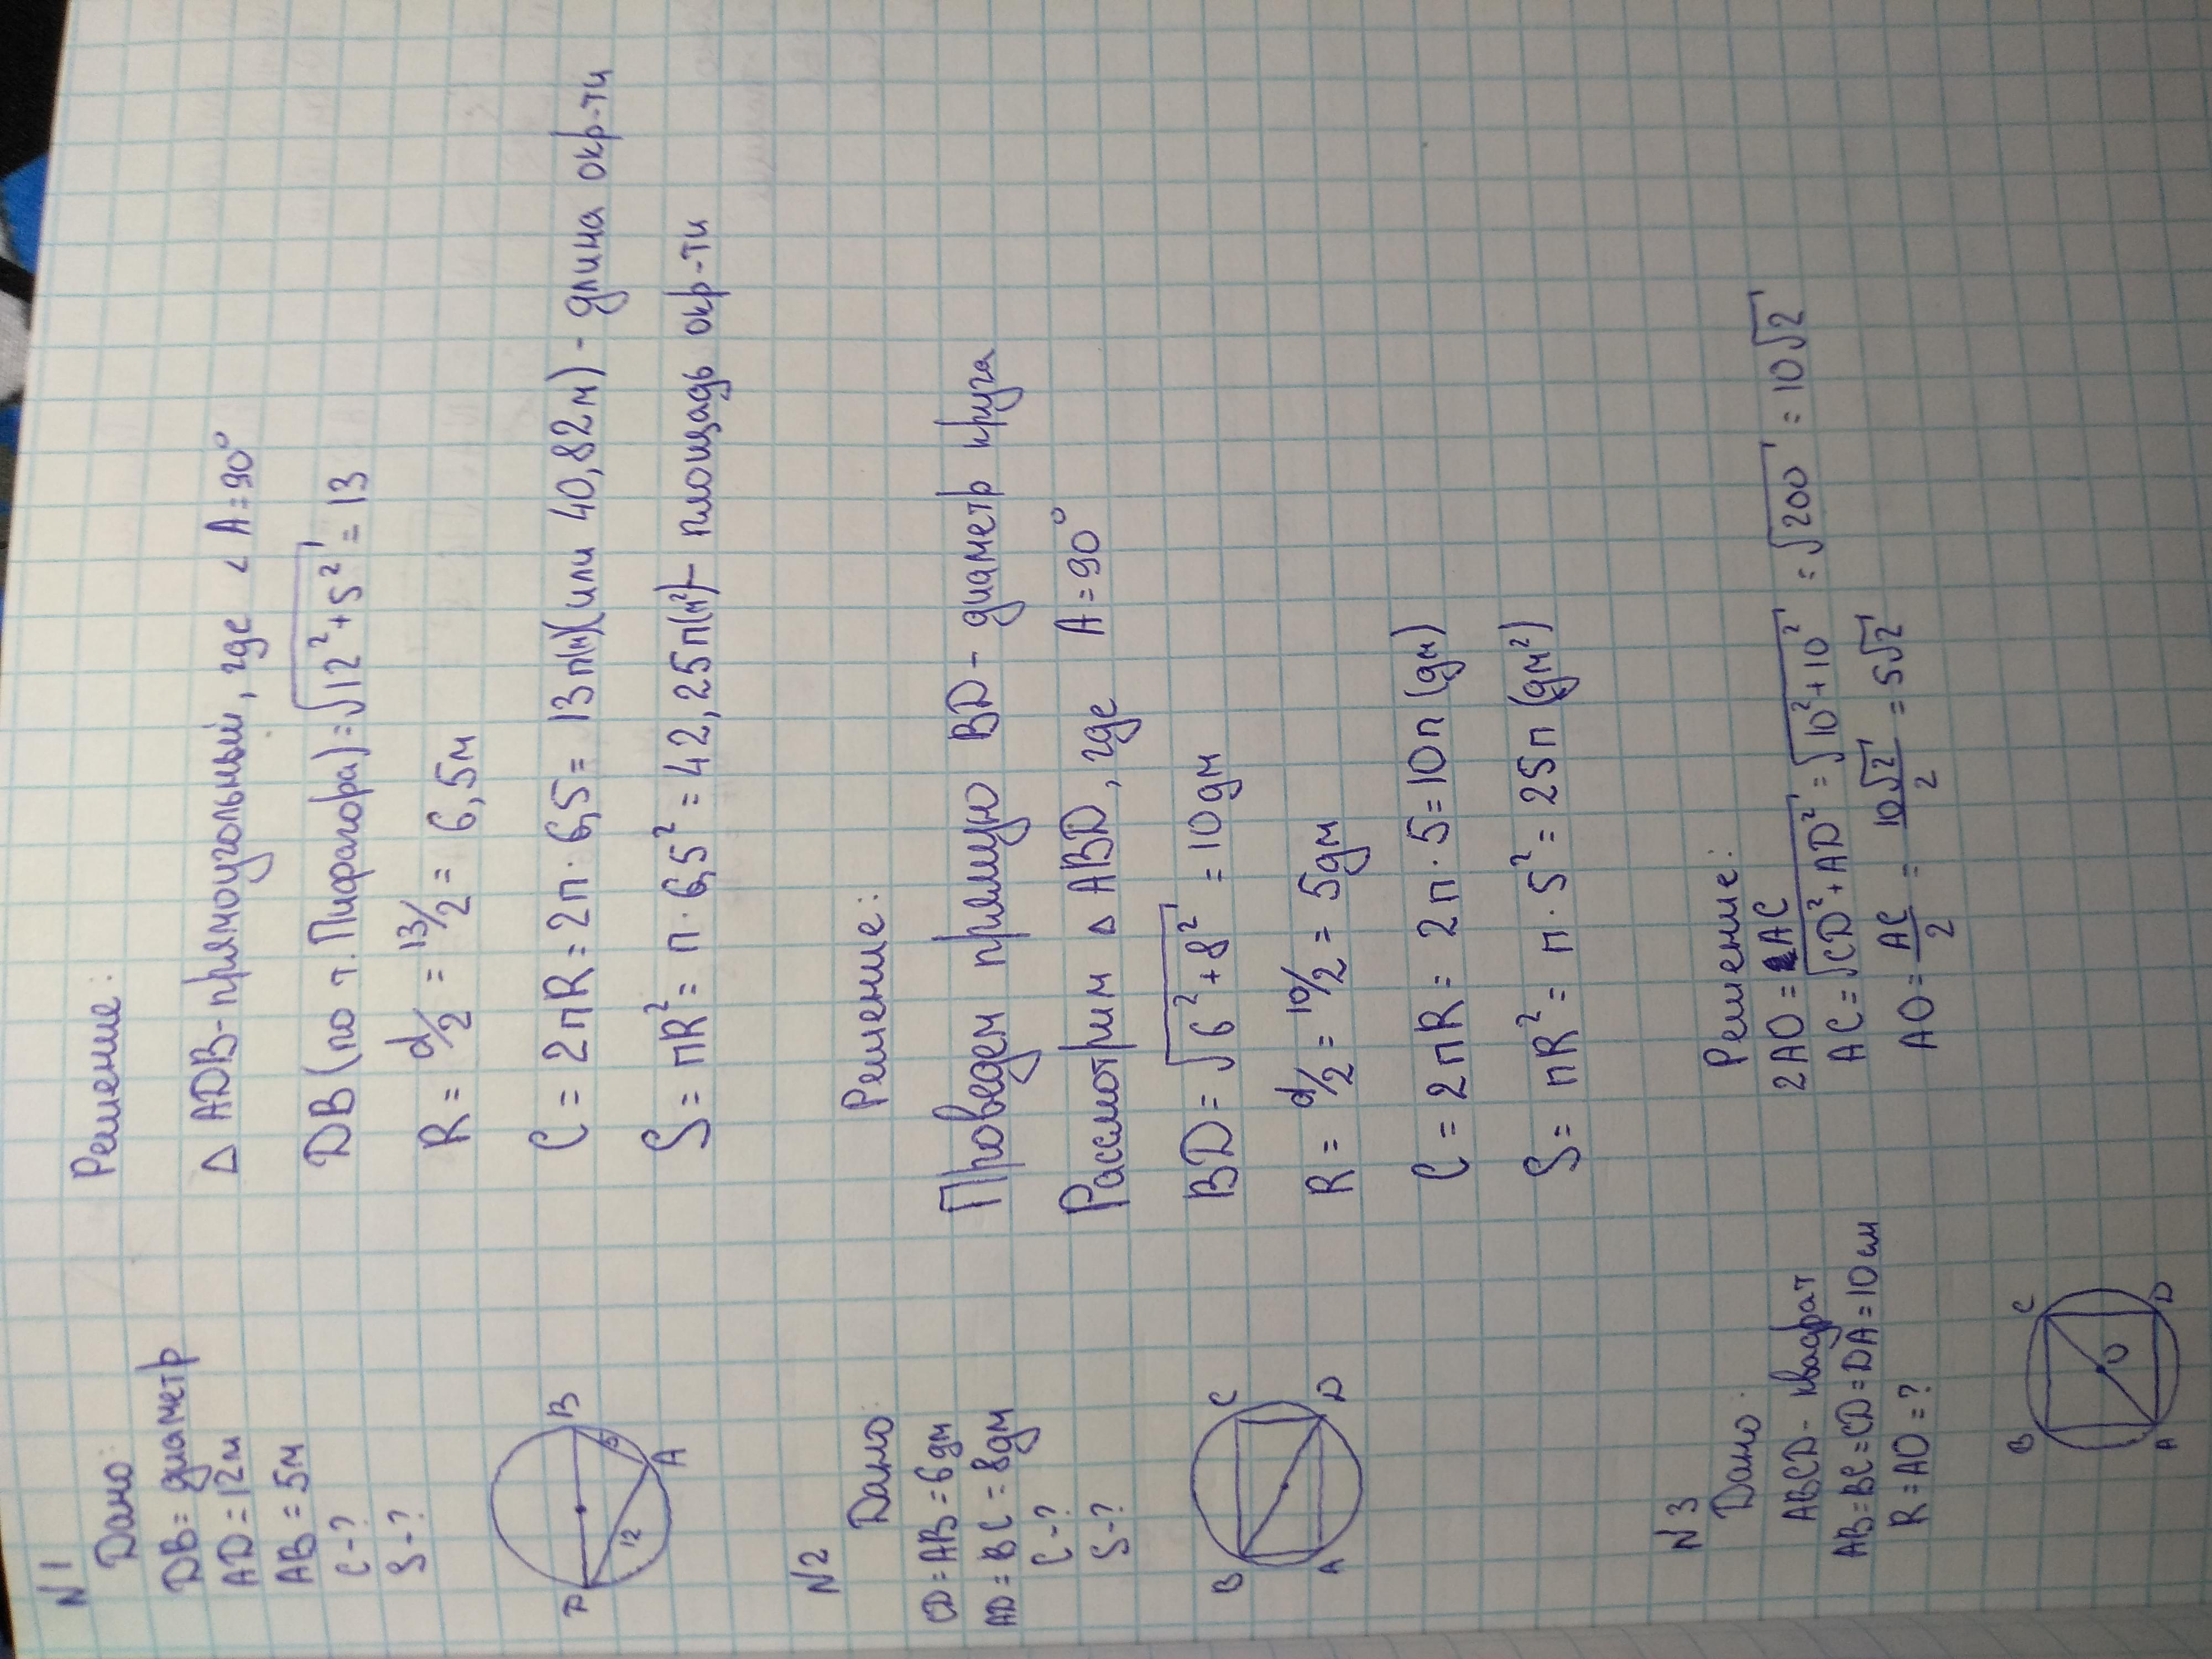 N1
Дано:
DB = диаметр
AD = 12м
AB = 5м
C-?
S-?
B
5
A
12
Решение:
Δ ADB - прямоугольный, где ∠A=90°
DB (по т. Пифагора) = √12²+5² = 13
R = d/2 = 13/2 = 6,5м
C = 2πR = 2π · 6,5 = 13π(м)(или 40,82м) - длина окр-ти
S = πR² = π · 6,5² = 42,25π(м²) - площадь окр-ти
N2
Дано:
CD = AB = 6дм
AD = BC = 8дм
C-?
S-?
B
C
A
D
Решение:
Проведем прямую BD - диаметр круга
Рассмотрим Δ ABD, где A=90°
BD = √6²+8² = 10дм
R = d/2 = 10/2 = 5дм
C = 2πR = 2π · 5 = 10π (дм)
S = πR² = π · 5² = 25π (дм²)
N3
Дано:
ABCD - квадрат
AB=BC=CD=DA=10см
R = AO = ?
B
C
O
A
D
Решение:
2AO = AC
AC = √CD²+AD² = √10²+10² = √200 = 10√2
AO = AC/2 = 10√2/2 = 5√2